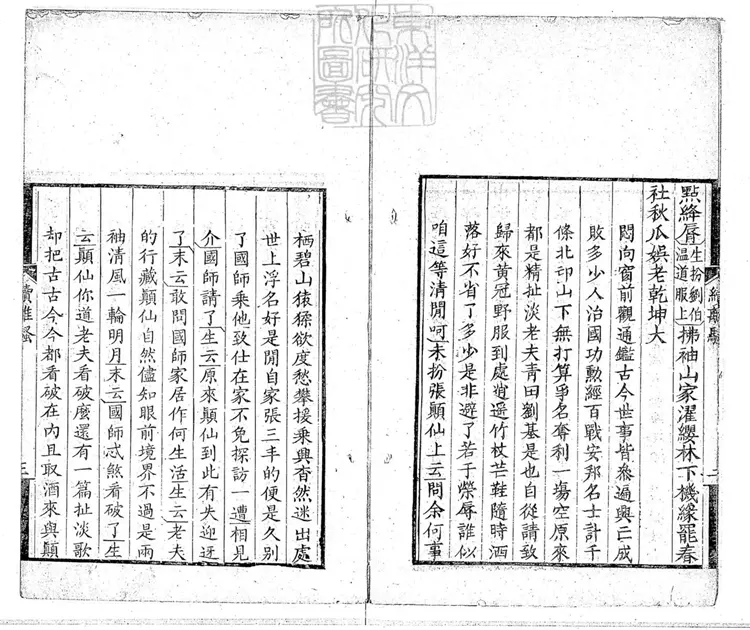 東洋文
化研究
所圖書
續離騷 二
點絳脣生扮劉伯温道服上拂袖山家濯纓林下機緣罷春
社秋瓜娯老乾坤大
悶向窗前觀通鑑古今世事皆叅遍興亡成
敗多少人治國功勲經百戰安邦名士計千
條北邙山下無打算爭名奪利一塲空原來
都是精扯淡老夫青田劉基是也自從請致
歸來黄冠野服到處逍遥竹杖芒鞋隨時洒
落好不省了多少是非避了若干榮辱誰似
咱這等清閒呵末扮張顛仙上云問余何事
栖碧山猿猱欲度愁攀援乘興杳然迷出處
世上浮名好是閒自家張三丰的便是久别
了國師乘他致仕在家不免探訪一遭相見
介國師請了生云原來顛仙到此有失迎迓
了末云敢問國師家居作何生活生云老夫
的行藏顛仙自然儘知眼前境界不過是兩
袖清風一輪明月末云國師忒煞看破了生
云顛仙你道老夫看破麽還有一篇扯淡歌
却把古古今今都看破在內且取酒來與顛
續離騷 三